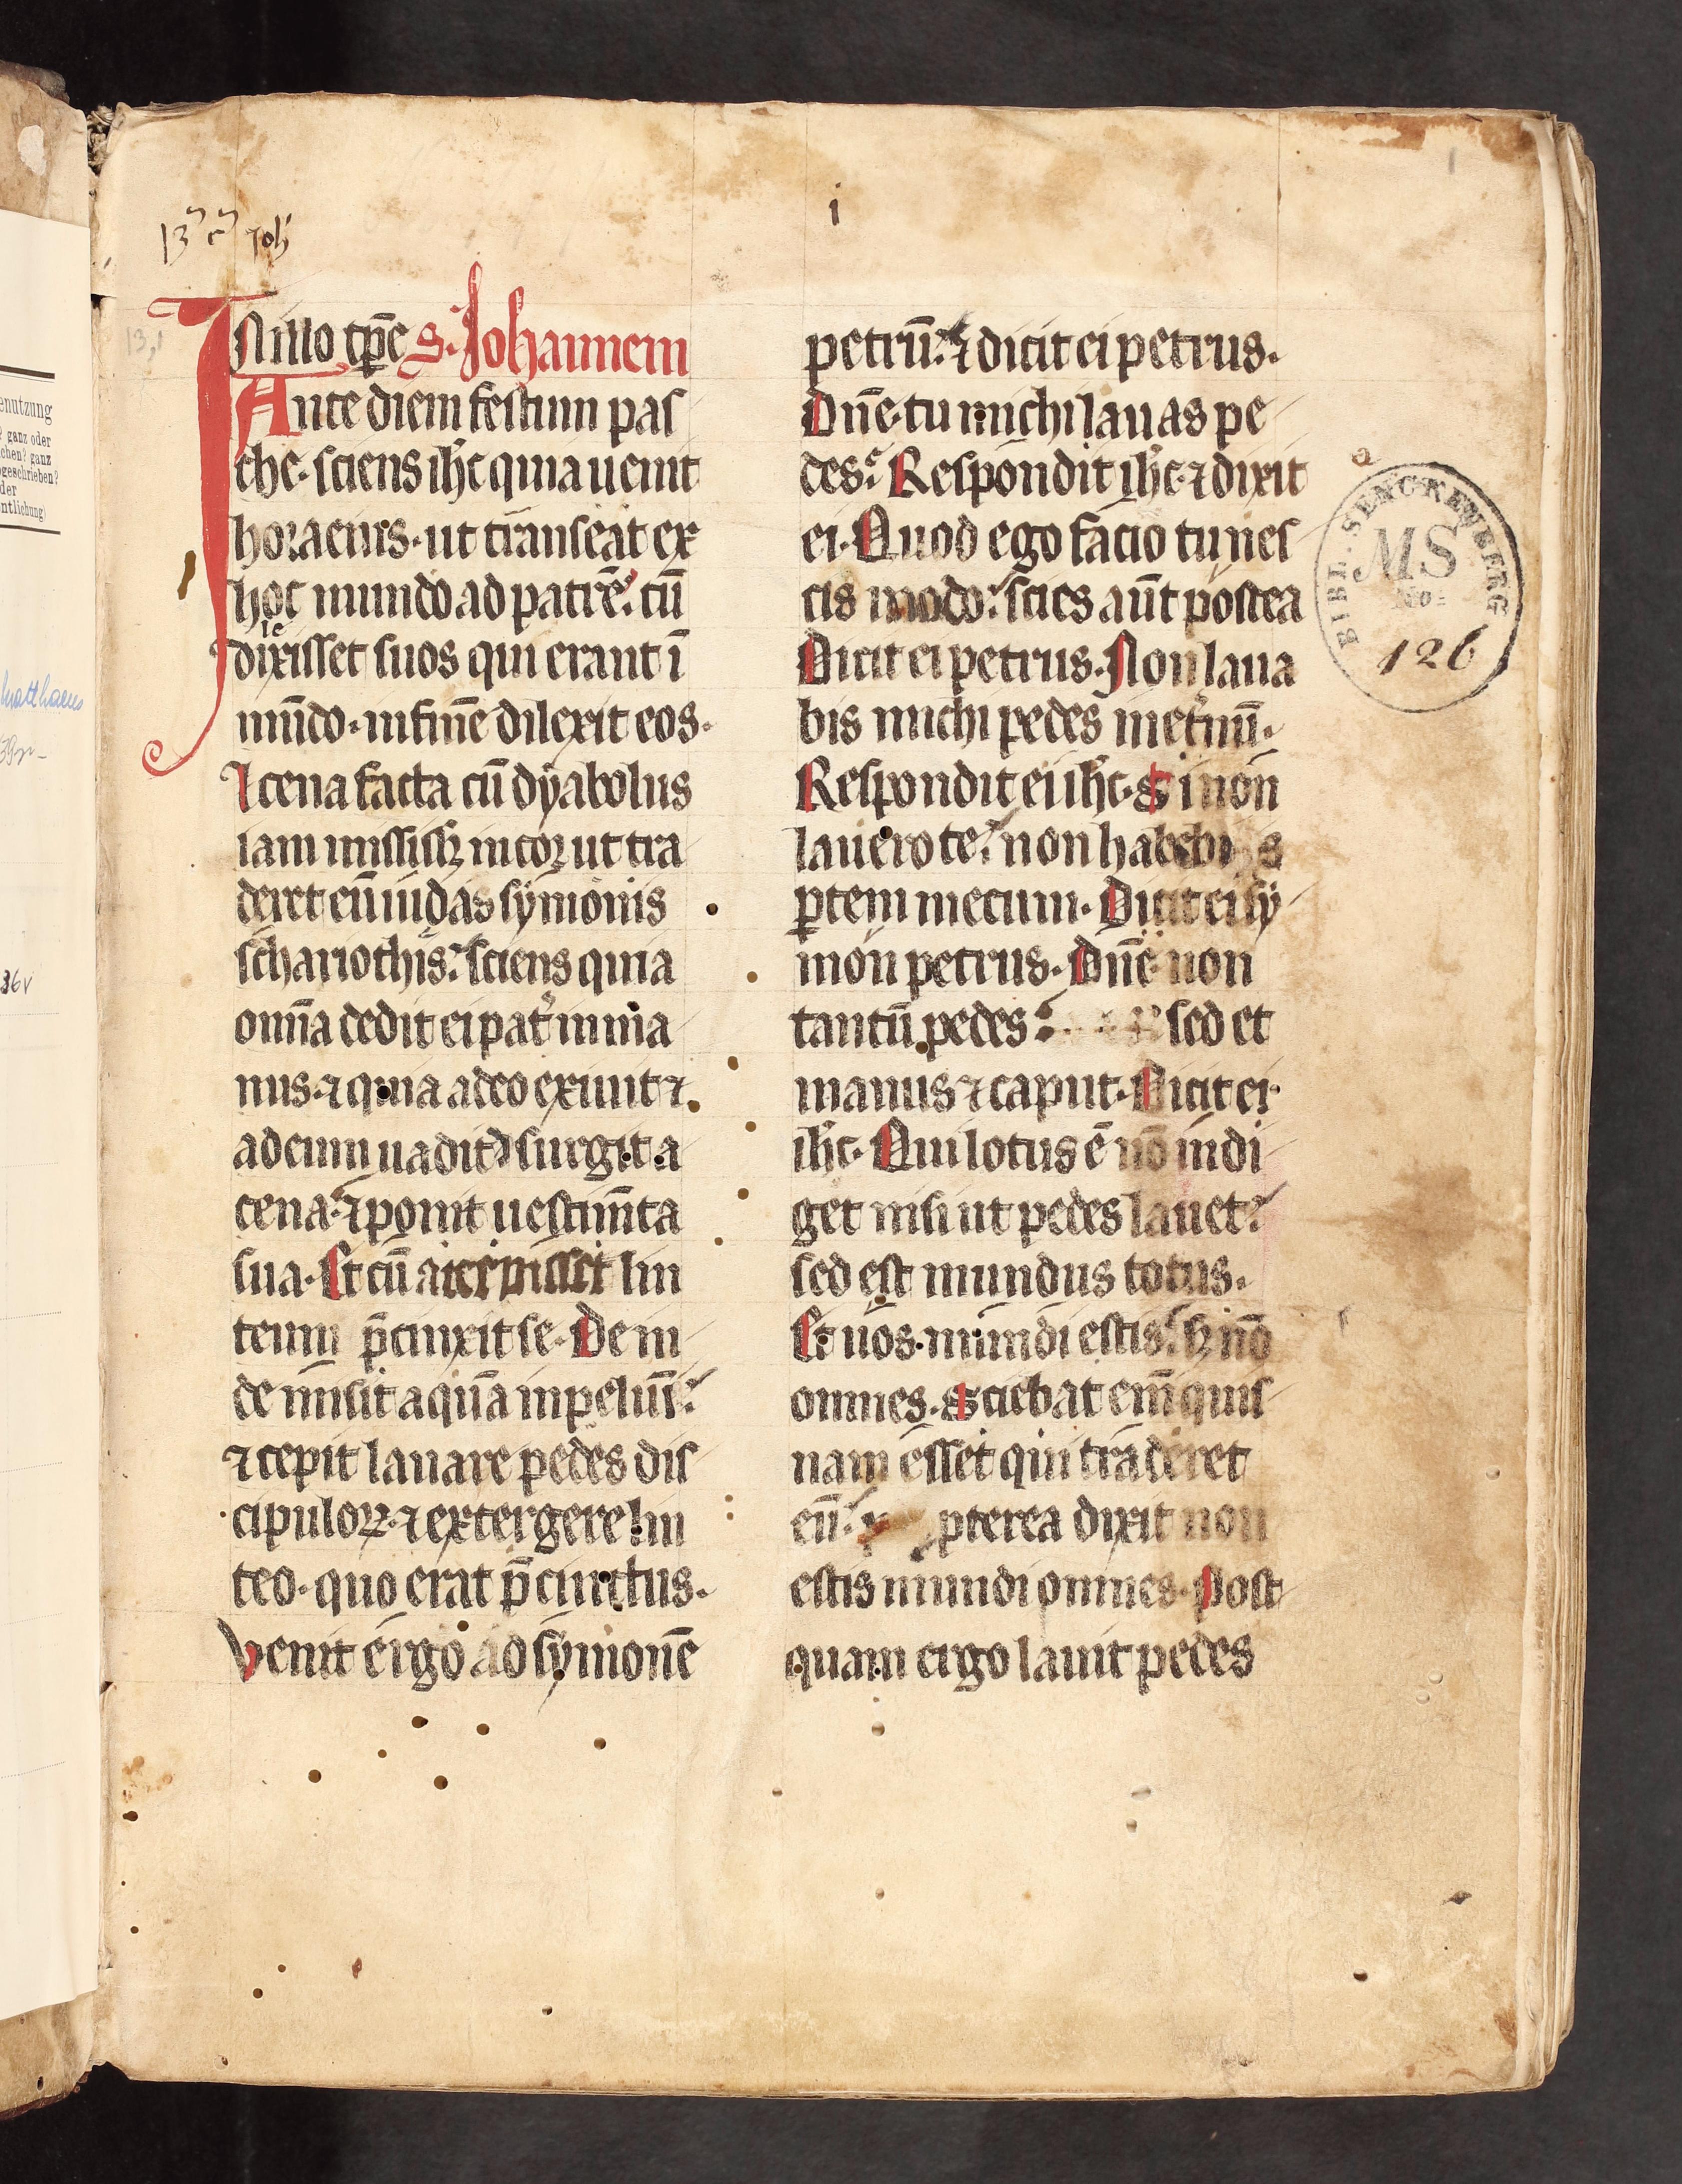 i
13 c Joh
13,1
In illo tp̄e S. Johannem
Ante diem festum pas
che· sciens ih̄c quia uenit
hora eius· ut transeat ex
hoc mundo ad patrē. cū
le
dixisset suos qui erant ī
mūdo· in finē dilexit eos·
Et cena facta cū dyabolus
iam misisꝫ in coꝝ ut tra
deret eū iudas symonis
schariothis. sciens quia
omīa dedit ei pat̉ in ma
nus· ⁊ quia a deo exiuit ⁊
ad eum uadit surgit a
cena. ⁊ ponit uestim̄ta
sua· Et cū accepisset lin
teum p̄cinxit se· Dein
de misit aquā in peluī.
⁊ cepit lauare pedes dis
cipuloꝝ· ⁊ extergere lin
teo· quo erat p̄cinctus·
Venit ergo ad symonē
petrū. ⁊ dicit ei petrus·
Dn̄e· tu michi lauas pe
des. Respondit ih̄c· ⁊ dixit
ei· Quod ego facio tu nes
cis modo. scies aūt postea
Dicit ei petrus· Non laua
bis michi pedes in et̉nū·
Respondit ei ih̄c· Si non
lauero te. non habebis
ꝑtem mecum· Dicit ei sy
mon petrus· Dn̄e· non
tantū pedes sed et
manus ⁊ caput· Dicit ei
ih̄c· Qui lotus ē nō indi
get nisi ut pedes lauet.
sed est mundus totus·
Et uos· mundi estis. sꝫ nō
omnes· Sciebat enī quis
nam esset qui traderet
eū. pterea dixit non
estis mundi omnes· Post
quam ergo lauit pedes
BIBL. SENCKENBERG
MS
No:
126
enutzung
ganz oder
chen? ganz
ogeschrieben?
der
ntlichung)
36v